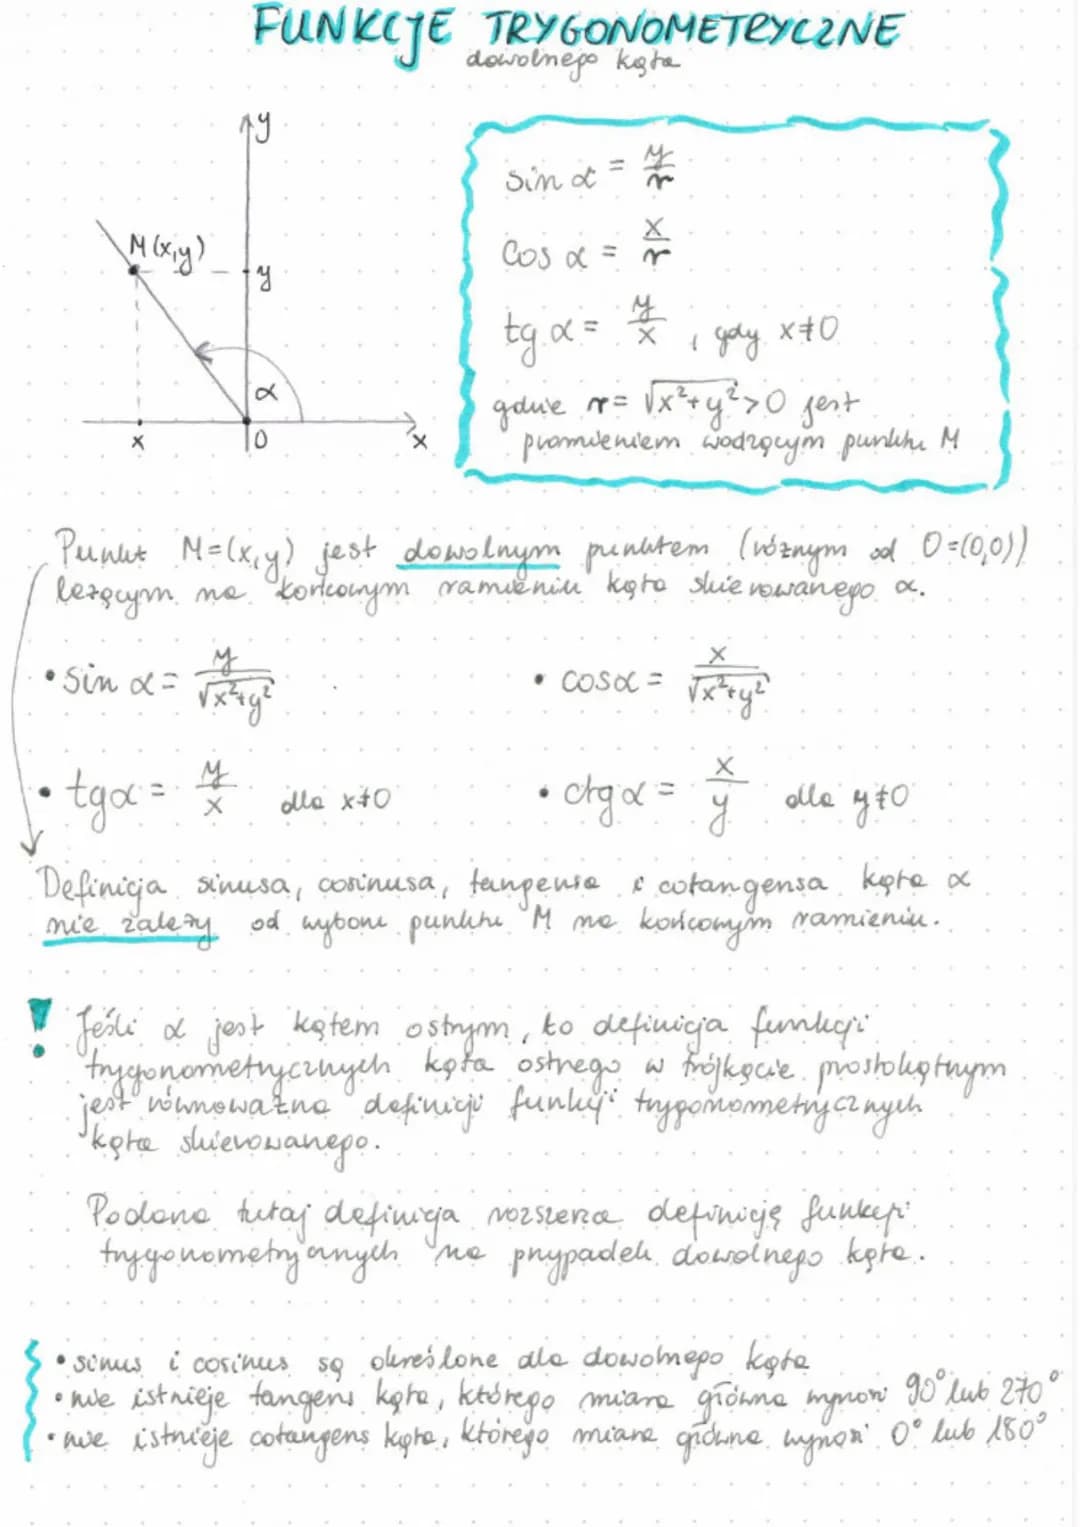 FUNKCJE TRYGONOMETRYCZNE
dowolnego kąta
y
M(x,y)
y
α
x
0
x
sin α = y/r
cos α = x/r
tg α = y/x , gdy x≠0
gdzie r= √x²+y² >0 jest
promieniem wodzącym punktu M
Punkt M=(x,y) jest dowolnym punktem (różnym od O=(0,0))
leżącym na końcowym ramieniu kąta skierowanego α.
• sin α = y/√x²+y²
• cosα = x/√x²+y²
• tgα = y/x dla x≠0
• ctgα = x/y dla y≠0
Definicja sinusa, cosinusa, tangensa i cotangensa kąta α
nie zależy od wyboru punktu M na końcowym ramieniu.
! Jeśli α jest kątem ostrym, to definicja funkcji
trygonometrycznych kąta ostrego w trójkącie prostokątnym
jest równoważna definicji funkcji trygonometrycznych
kąta skierowanego.
Podana tutaj definicja rozszerza definicję funkcji
trygonometrycznych na przypadek dowolnego kąta.
• sinus i cosinus są określone dla dowolnego kąta
• nie istnieje tangens kąta, którego miara główna wynosi 90° lub 270°
• nie istnieje cotangens kąta, którego miara główna wynosi 0° lub 180°